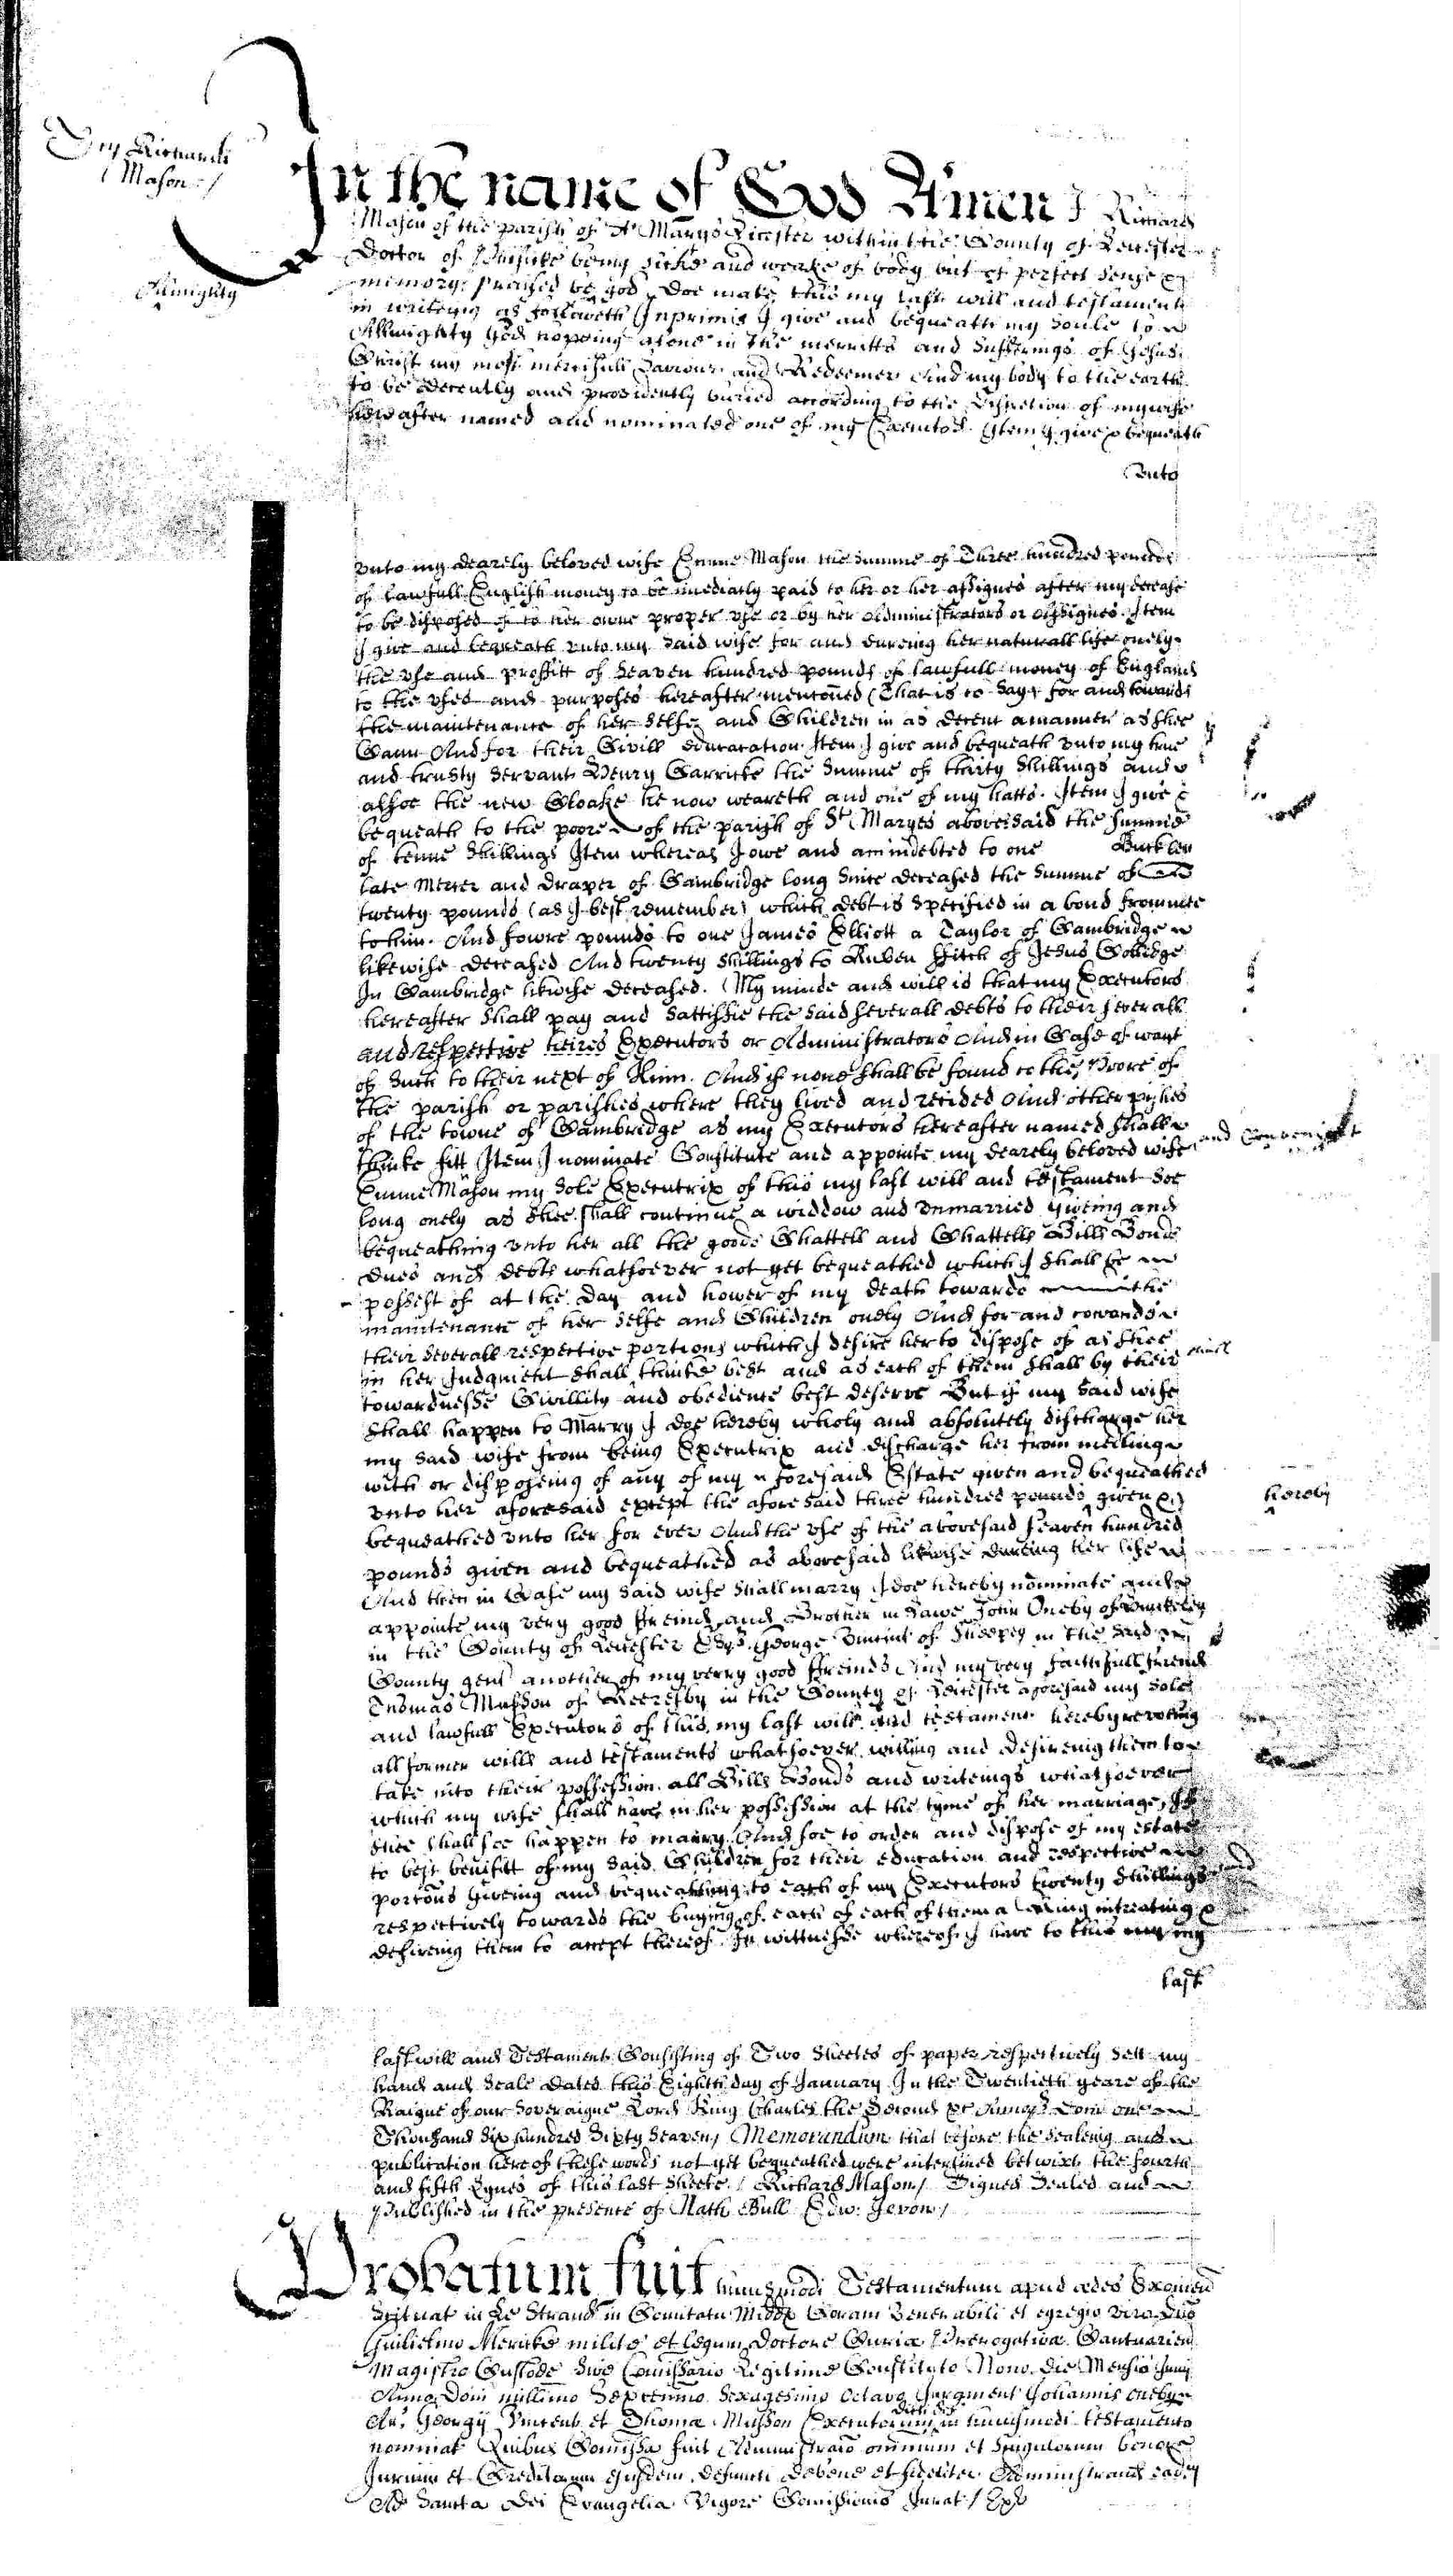 Richardi
Mason /
In the name of God Amen I Richard
Mason of the parish of St Maryes Leicester within the County of Leicester
Doctor of Phisicke being sicke and weake of body but of perfect sence &
memory praised be god Doe make this my last will and testament
Almighty
in writeing as followeth Inprimis I give and bequeath my Soule to
Allmighty God hopeing alone in the merritts and Sufferings of Jesus
Christ my most mercifull Saviour and Redeemer And my body to the earth
to be decently and providently buried according to the discretion of my wife
hereafter named and nominated one of my Executors Item I give & bequeath
Unto
unto my dearely beloved wife Emme Mason the Summe of Three hundred pounds
of lawfull English money to be imediatly paid to her or her assignes after my decease
to be disposed of to her owne proper use or by her Administrators or Assignes. Item
I give and bequeath unto my said wife for and dureing her naturall life onely
the use and proffitt of Seaven hundred pounds of lawfull money of England
to the uses and purposes hereafter mentoned (That is to say) for and towards
the maintenance of her selfe and Children in as decent a manner as shee
Cann And for their Civill educacation Item I give and bequeath unto my true
and trusty servant Henry Garricke the Summe of thirty shillings and
alsoe the new Cloake he now weareth and one of my hatts. Item I give &
bequeath to the poore of the parish of St Maryes abovesaid the summe
of tenne shillings Item whereas I owe and am indebted to one Buckley
late Mercer and draper of Cambridge long since deceased the Summe of
twenty pounds (as I best remember) which debt is specified in a bond from mee
to him. And fowre pounds to one James Elliott a Taylor of Cambridge
likewise deceased And twenty shillings to Ruben ffitch of Jesus Colledge
In Cambridge likewise deceased. My minde and will is that my Executors
hereafter shall pay and sattisfie the said severall debts to their severall
and respective heires Executors or Administrators And in Case of want
of such to their next of Kinn. And if none shall be found to the Poore of
the parish or parishes where they lived and recided And other pishes
of the towne of Cambridge as my Executors hereafter named shall
and Convenient
thinke fitt Item I nominate Constitute and appointe my dearely beloved wife
Emme Mason my sole Executrix of this my last will and testament soe
long onely as shee shall continue a widdow and unmarried giveing and
bequeathing unto her all the goods Chattell and Chattells Bills Bonds
dues and debts whatsoever not yet bequeathed which I shall be
possest of at the day and hower of my death towards the
maintenance of her selfe and Children onely And for and towards
their severall respective portions which I desire her to dispose of as shee
in her Judgment shall thinke best and as each of them shall by their
towardnesse Civillity and obedience best deserve But if my said wife
shall happen to Marry I doe hereby wholy and absolutely discharge her
my said wife from being Executrix and discharge her from medling
with or disposeing of any of my aforesaid Estate given and bequeathed
unto her aforesaid except the aforesaid three hundred pounds given &
hereby
bequeathed unto her for ever And the use of the abovesaid seaven hundred
pounds given and bequeathed as abovesaid likewise dureing her life
And then in Case my said wife shall marry I doe hereby nominate and
appointe my very good ffreind and Brother in Lawe John Oneby of
in the County of Leicester Esqr. George Vincent of Sheepey in the said
County gent another of my verry good ffreinds And my very faithfull freind
Thomas Musson of in the County of Leicester aforesaid my sole
and lawfull Executors of this my last will and testament hereby revoking
all former wills and testaments whatsoever willing and desireing them to
take into their possession all Bills Bonds and writeings whatsoever
which my wife shall have in her possession at the tyme of her marriage, If
shee shall soe happen to marry And soe to order and dispose of my estate
to best benifitt of my said Children for their education and respective
portons Giveing and bequeathing to each of my Executors twenty shillings
respectively towards the buying of each of each of them a Ring intreating &
desireing them to accept thereof. In wittnesse whereof I have to this my
last
last will and Testament Consisting of Two sheetes of paper respectively sett my
hand and seale dated this Eighth day of January In the Twentieth yeare of the
Raigne of our soveraigne Lord King Charles the second &c Annoq Dom one
Thousand six hundred sixty seaven / Memorandum that before the sealeing and
publication hereof these words not yet bequeathed were interlined betwixt the fourth
and fifth Lynes of this last sheete. / Richard Mason / Signed sealed and
published in the presence of Nath. Bull Edw: Jevon /
Probatum fuit huiusmodi Testamentum apud ædes Exonien
scituat in Le Strand in Comitatu Middx Coram venerabili et egregio viro Dno
Guilielmo Mericke milite et legum doctore Curiæ Prerogativæ Cantuarien
Magistro Custode sive Comissario Legitime Constituto Nono die Mensis Junij
Anno Dom millimo Sexcenmo Sexagesimo octavo Juramentis Johannis Oneby
Ar. Georgij Vincent et Thomæ Musson Executorum in huiusmodi testamento
nominat Quibus Comissa fuit Administraco omnium et singulorum bonorum
Jurium et Creditorum ejusdem defuncti de bene et fideliter Administrand eadem
Ad Sancta Dei Evangelia Vigore Comissionis Jurat / Exr